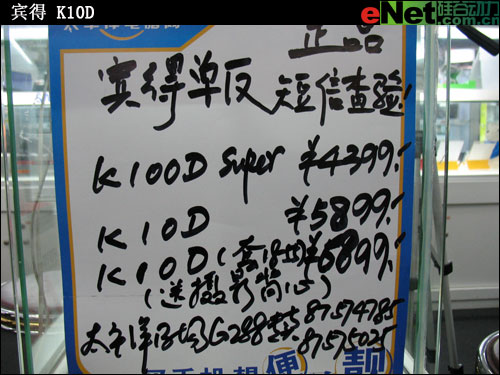 宾得 K10D
eNet硅谷动力
.com.cn
正品
宾得单反 短信查验!
K100D Super ¥4399.-
K10D ¥5899.-
K10D (套18-55) ¥6899.-
(送摄影背心)
太平洋 G288 87574785
87575025
便 靓